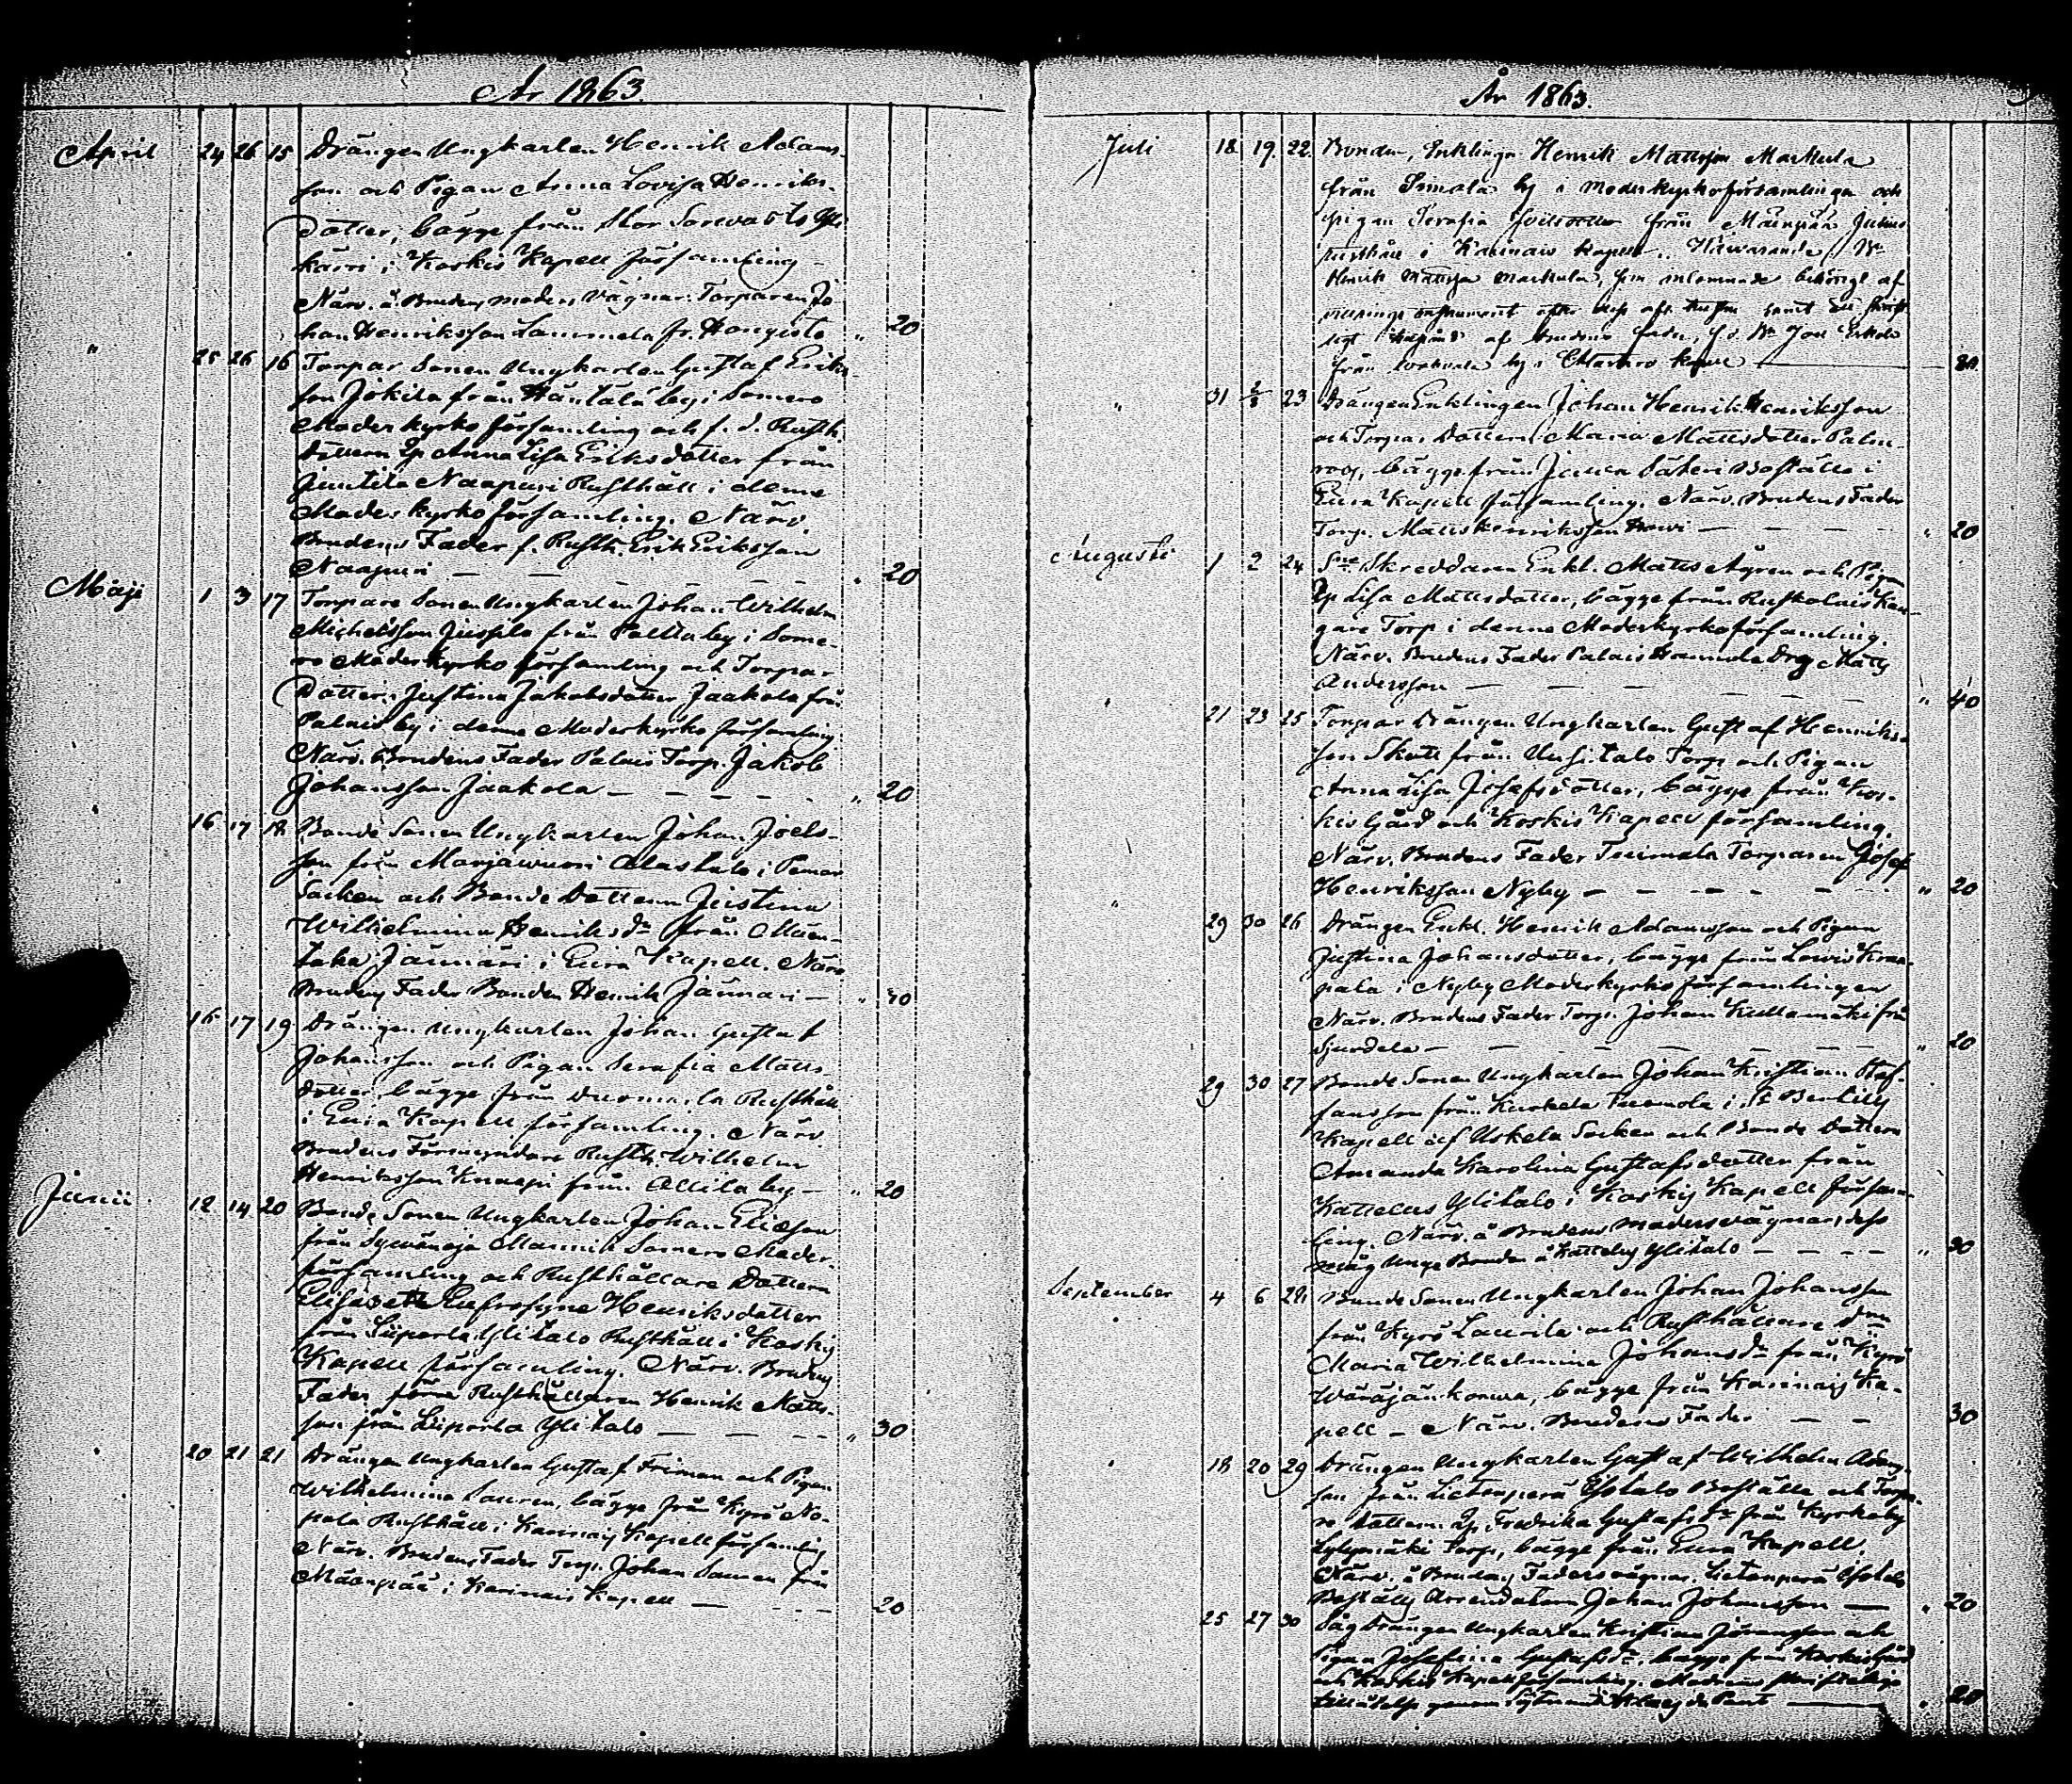 År 1863.
April 24 26 15 Drängen Ungkarlen Henrik Adams-
son och Pigan Anna Lovisa Henriks-
dotter, bägge från Stor Sorvasto Yli
käiri i Koskis Kapell församling –
Närv. å Brudens moders vägnar Torparen Jo-
han Henriksson Lammela fr. Hongisto „ 20
„ 25 26 16 Torpar Sonen Ungkarlen Gustaf Eriks-
son Jokila från Häntälä by i Somero
Moderkyrko församling och f. d. Rusth.
dottern Ip Anna Lisa Eriksdotter från
Juntila Naapuri Rusthåll i denna
Moderkyrko församling. Närv.
Brudens Fader f. Rusth. Erik Eriksson
Naapuri — — — „ 20
Maji 1 3 17 Torpare Sonen Ungkarlen Johan Wilhelm
Michelsson Jussila från Palikka by i Some-
ro Moderkyrko församling och Torpar
Dottern Justina Jakobsdotter Jaakola från
Palais by i denna Moderkyrko församling
Närv. Brudens Fader Palais Torp. Jakob
Johansson Jaakola — — — „ 20
16 17 18 Bonde Sonen Ungkarlen Johan Joels-
son från Marjawuori Alastalo i Pemar
Socken och Bonde Dottern Justina
Wilhelmina Henriksdr från Mäen-
taka Jännäri i Eura Kapell. Närv.
Brudens Fader Bonden Henrik Jännäri — „ 40
16 17 19 Drängen Ungkarlen Johan Gustaf
Johansson och Pigan Serafia Matts-
dotter, bägge från Duomaila Rusthåll
i Eura Kapell församling. Närv.
Brudens Förmyndare Rusth. Wilhelm
Henriksson Knaapi från Allila by — „ 20
Junii 12 14 20 Bonde Sonen Ungkarlen Johan Eliasson
från Sywänoja Mannik Somero Moder-
församling och Rusthållare Dottern
Elisabeth Eufrosyne Henriksdotter
från Liiperla Ylitalo Rusthåll i Koskis
Kapell församling. Närv. Brudens
Fader förra Rusthållaren Henrik Matts-
son från Liiperla Ylitalo — — — „ 30
20 21 21 Drängen Ungkarlen Gustaf Friman och Pigan
Wilhelmina Sauren, bägge från Kyrö No-
pola Rusthåll i Karinais Kapell församling
Närv. Brudens Fader Torp. Johan Sauren från
Mäenpää i Karinais Kapell — — — 20
År 1863.
Juli 18 19 22 Bonden, Enklingen Henrik Mattsson Markula
från Simala by i moderkyrkoförsamlingen och
pigan Serafia Joelsdotter från Mäenpää
rusthåll i Karinais kapell. Närvarande
Henrik Mattsson Markula, som inlemnade behörigt af-
vittrings instrument efter dess afl. hustru samt ett skrift-
ligt af brudens fader, f. d. Joel
från by i kapell — 80
„ 31 2/8 23 Drängen Enklingen Johan Henrik Henriksson
och Torpar Dottern Maria Mattsdotter Palm-
roos, bägge från Säteri Boställe i
Eura Kapell församling. Närv. Brudens Fader
Torp. Matts Henriksson — — — „ 20
Augusti 1 2 24 Skreddaren Enkl. Matts Ågren och Pigan
Ip Lisa Mattsdotter, bägge från Ruskolais Kan-
gare Torp i denna Moderkyrkoförsamling.
Närv. Brudens Fader Palais Hannula Drg Matts
Andersson — — — „ 40
21 23 25 Torpar Drängen Ungkarlen Gustaf Henriks-
son Skott från Uusitalo Torp och Pigan
Anna Lisa Josefsdotter, bägge från Kos-
kis Gård och Koskis Kapell församling.
Närv. Brudens Fader Tuimala Torparen Josef
Henriksson Nyby — — — „ 20
„ 29 30 26 Drängen Enkl. Henrik Adamsson och Pigan
Justina Johansdotter, bägge från
pala i Nyby Moderkyrko församlingen
Närv. Brudens Fader Torp. Johan Kullamäki från
Sjurdela — — — „ 20
29 30 27 Bonde Sonen Ungkarlen Johan Kristian Staf-
fansson från Kurkela Tuomola i St Bertills
Kapell af Uskela Socken och Bonde Dottern
Amanda Karolina Gustafsdotter från
Kattelus Ylitalo i Koskis Kapell försam-
ling. Närv. å Brudens moders vägnar, dess
måg Unge Bonden å Kattelus Ylitalo — — — „ 30
September 4 6 28 Bonde Sonen Ungkarlen Johan Johansson
från Kyrö Laurila och Rusthållare Drn
Maria Wilhelmina Johansdr från Kyrö
Wäräjänkorwa, bägge från Karinais Ka-
pell – Närv. Brudens Fader — — 30
18 20 29 Drängen Ungkarlen Gustaf Wilhelm Adams-
son från Lietenperä Isotalo Boställe och Torpa-
re Dottern Ip Fredrika Gustafsdr från Kyrkoby
Torp, bägge från Eura Kapell
Närv. å Brudens Faders vägnar, Lietenperä Isotalo
Boställs Arrendatorn Johan Johansson — „ 20
25 27 30 Sågdrängen Ungkarlen Kristian Göransson och
Pigan Josefina Gustafsdr, bägge från Koskis Gård
och Koskis Kapell församling. Modrens skriftliga
tillåtelse genom de Pont — „ 20